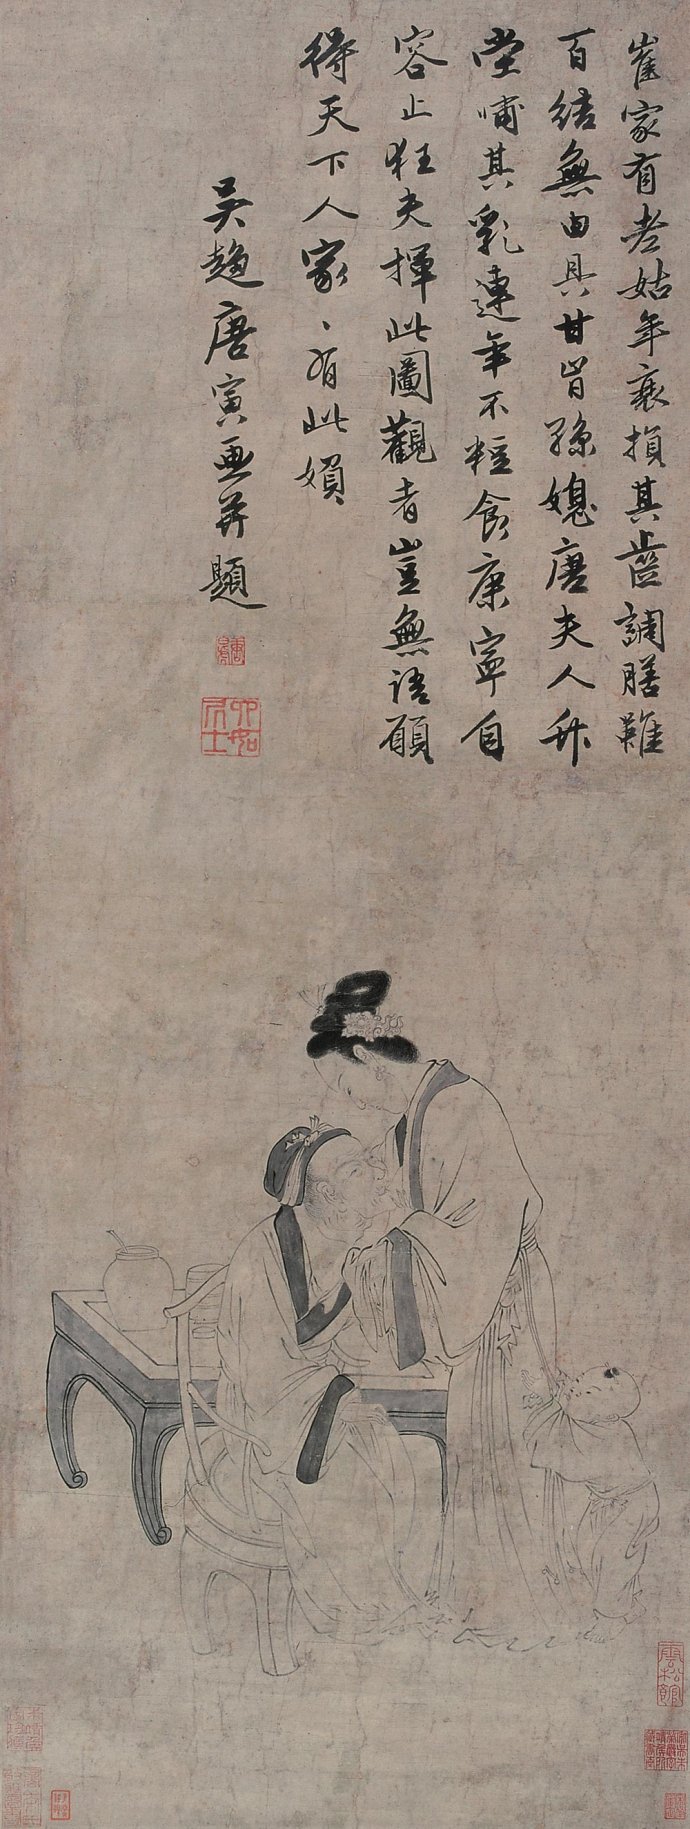 崔家有老姑年衰損其齒調膳難
百結無由具甘旨孫媳唐夫人升
堂哺其乳連年不粒食康寧自
容止狂夫揮此圖觀者豈無語願
得天下人家〻有此婦
吳趨唐寅畫并題
唐寅
六如居士
雲松館